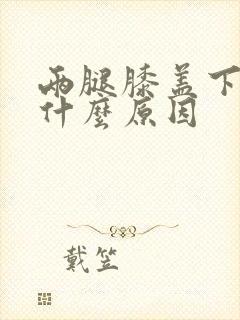 兩腿膝盖下
什麼原因
戴笠